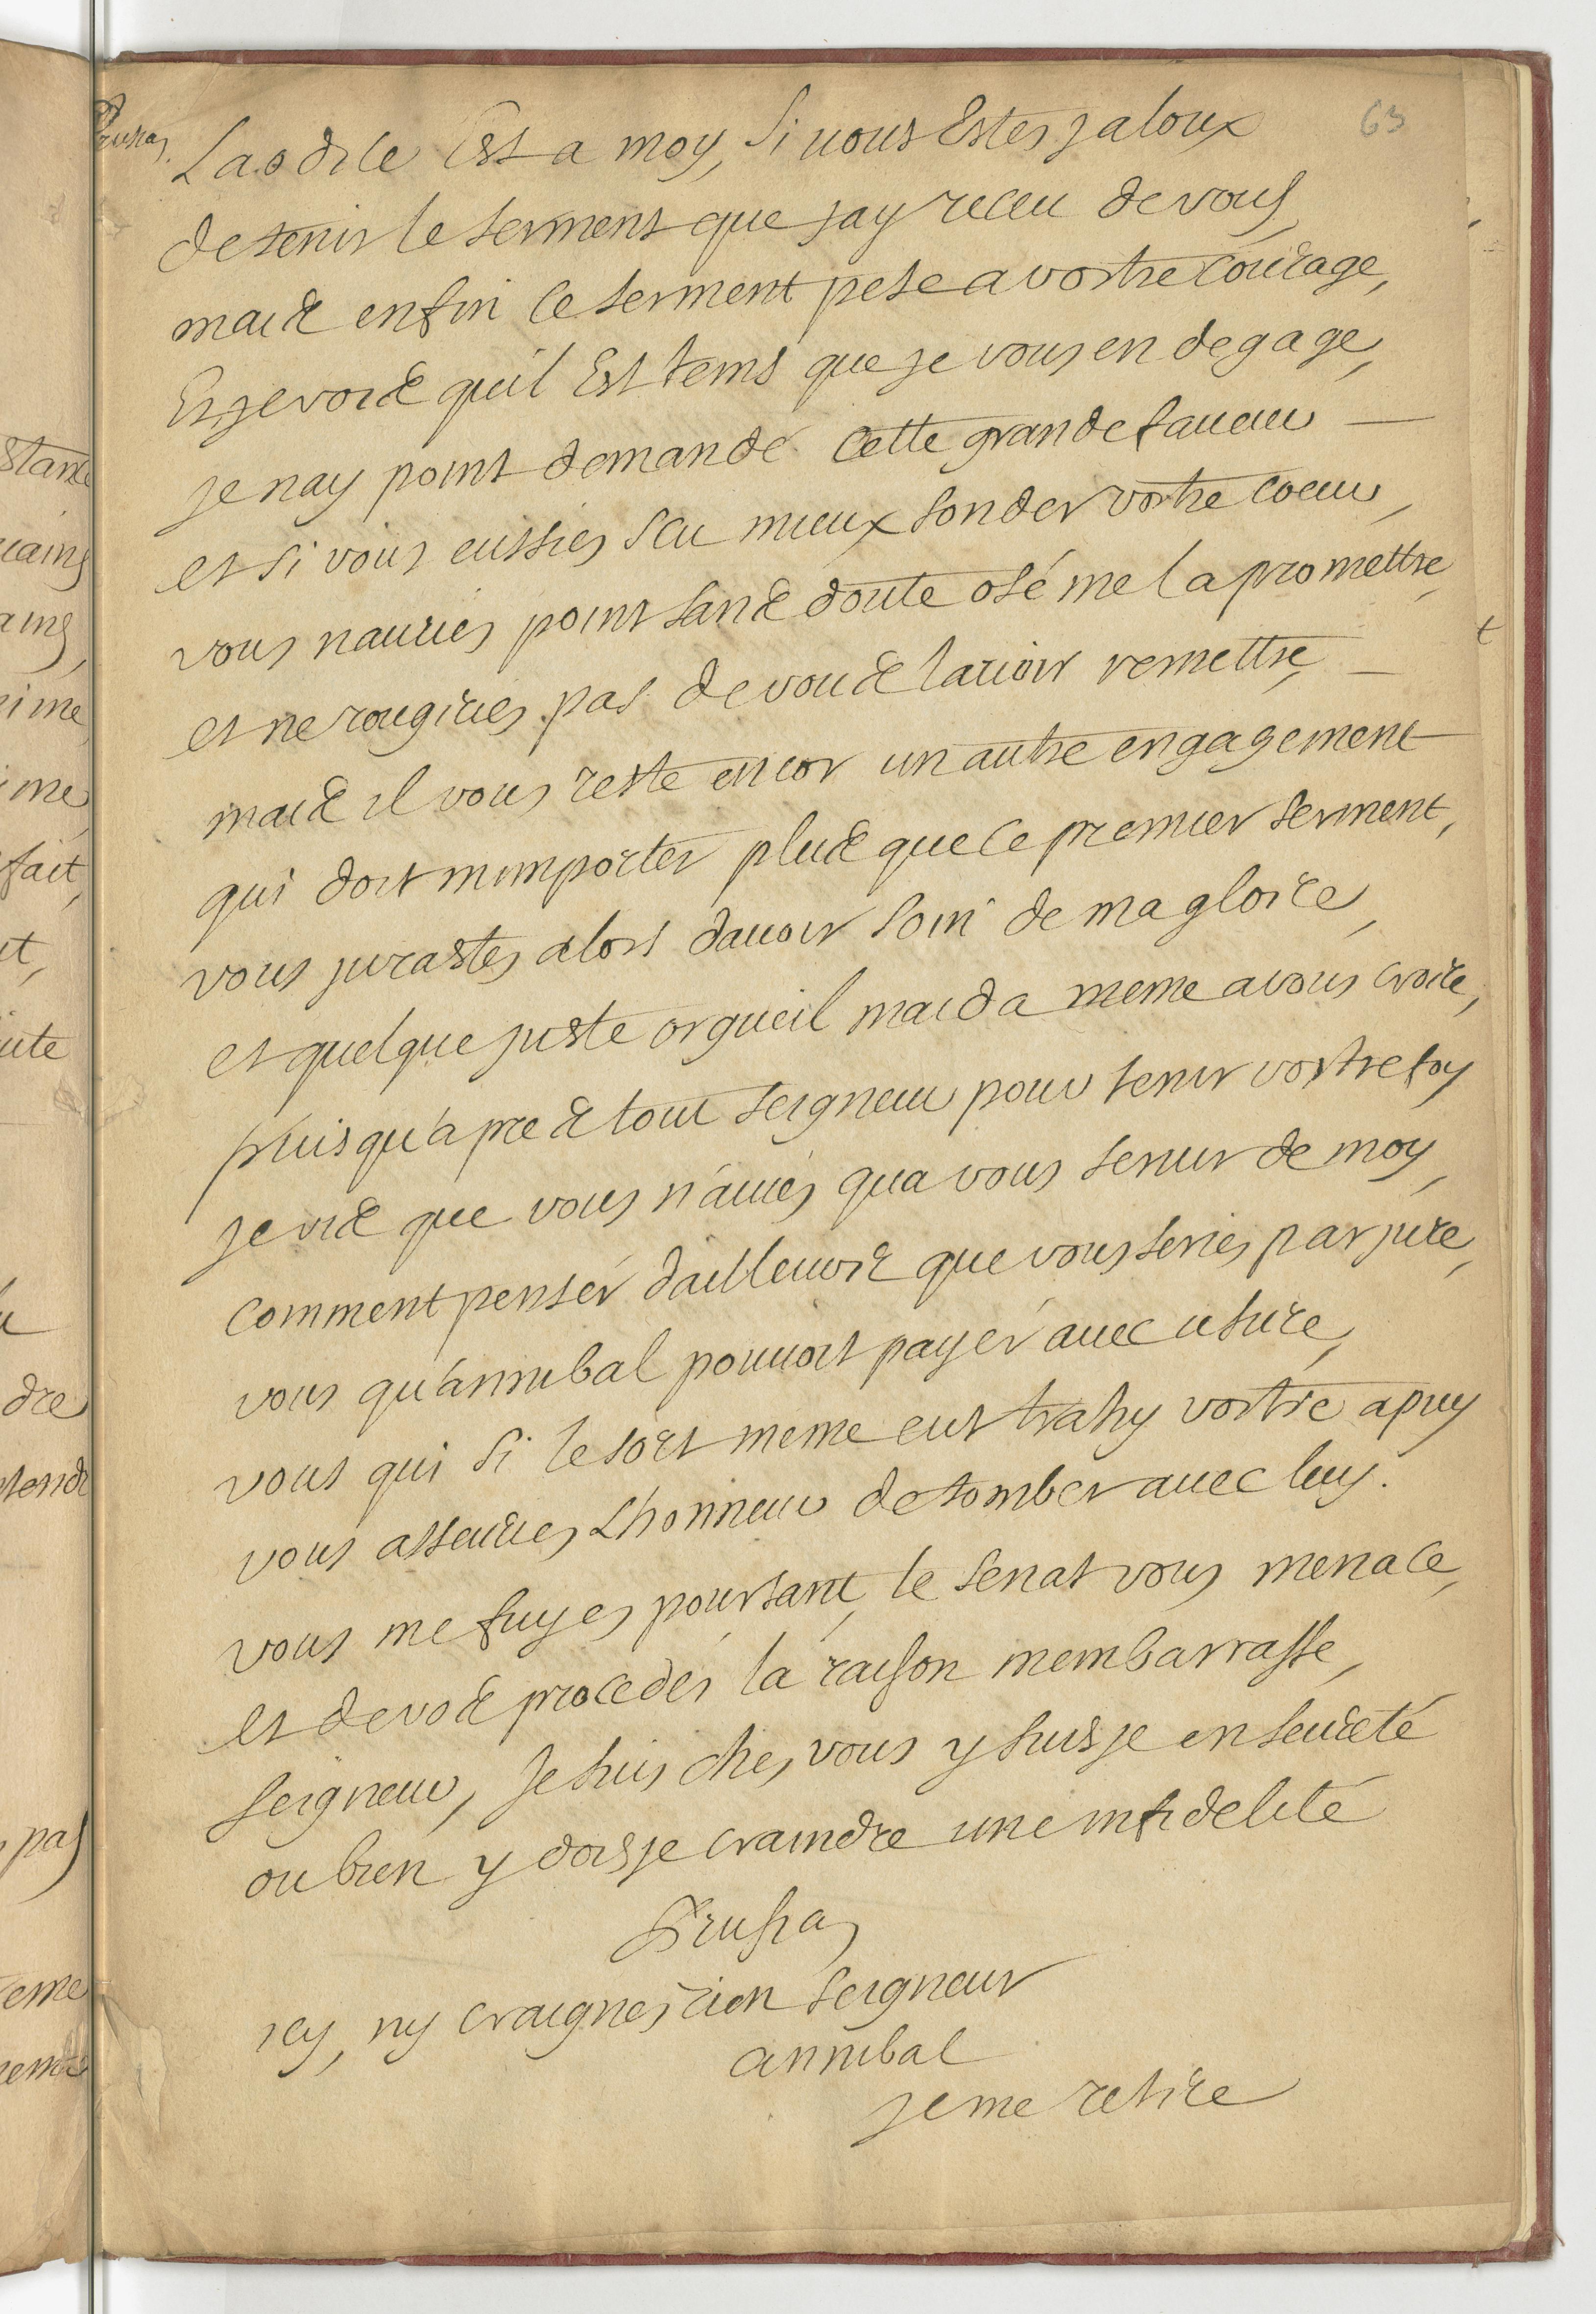 63
Laodice Est a moy, si vous Estes jaloux
de tenir le serment que jay receu de vous,
mais enfin ce serment pese a vostre courage,
Et je vois quil Est tems que je vous en degage,
je nay point demandé cette grande faueur
et si vous eussies sceu mieux sonder vostre coeur,
vous nauries point sans doute osé me la promettre,
et ne rougiries pas de vous lauoir remettre,
mais il vous reste encor un autre engagement
qui doit mimporter plus que ce premier serment,
vous jurastes alors dauoir soin de ma gloire,
et quelque juste orgueil maida meme a vous croire,
puisqu'apres tout seigneur pour tenir vostre foy
je vis que vous n'auies qua vous tenir de moy,
comment penser dailleurs que vous series parjure,
vous qu'annibal pouuoit payer auec usure,
vous qui si le sort meme eut trahy vostre apuy
vous assuries Lhonneur de tomber auec luy.
vous me fuyes pourtant, le senat vous menace,
et de vos procedés la raison membarrasse,
seigneur, je suis ches vous y suis je en seureté
ou bien y dois je craindre une infidelité
Prusias
icy, ny craignes rien seigneur
annibal
je me retire